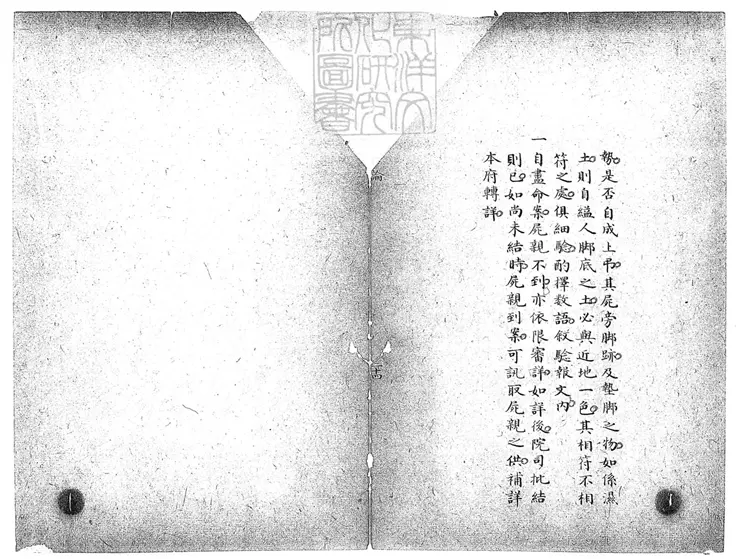 勢是否自成上弔其屍旁脚跡及墊脚之物如係濕
土則自縊人脚底之土必與近地一色其相符不相
符之處俱細驗酌擇數語叙驗報文内
一自盡命案屍親不到亦依限審詳如詳後院司批結
則已如尚未結時屍親到案可訊取屍親之供補詳
本府轉詳
東洋文
化研究
所圖書